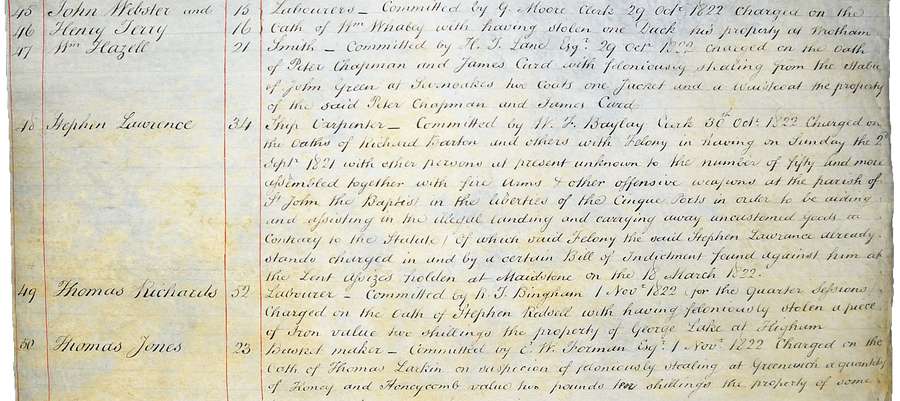 45 John Webster and 15 Labourers – Committed by G. Moore Clerk 29 Octr 1822 Charged on the
46 Henry Terry 16 Oath of Wm Whaley with having stolen one Duck his property at Wrotham
47 Wm Hazell 21 Smith – Committed by H. T. Lane Esqr 29 Octr 1822 charged on the Oath
of Peter Chapman and James Curd with feloniously stealing from the stable
of John Green at Sevenoakes two Coats one Jacket and a Waistcoat the property
of the said Peter Chapman and James Curd
48 Stephen Lawrence 34 Ship Carpenter – Committed by W. F. Baylay Clerk 30th Octr 1822 Charged on
the Oaths of Richard Barton and others with Felony in having on Sunday the 2d
Septr 1821 with other persons at present unknown to the number of fifty and more
assembled together with fire Arms & other offensive weapons at the parish of
St John the Baptist in the liberties of the Cinque Ports in order to be aiding
and assisting in the illegal landing and carrying away uncustomed goods
Contrary to the Statute / Of which said Felony the said Stephen Lawrance already
stands charged in and by a certain Bill of Indictment found against him at
the Lent Assizes holden at Maidstone on the 18 March 1822.
49 Thomas Richards 52 Labourer – Committed by R. T. Bingham 1 Novr 1822 for the Quarter Sessions
Charged on the Oath of Stephen Redsell with having feloniously stolen a piece
of Iron value two shillings the property of George Lake at Higham
50 Thomas Jones 23 Basket maker – Committed by E. W. Forman Esqr 1 Novr 1822 Charged on the
Oath of Thomas Larkin on suspicion of feloniously stealing at Greenwich a quantity
of Honey and Honeycomb value two pounds ten shillings the property of some